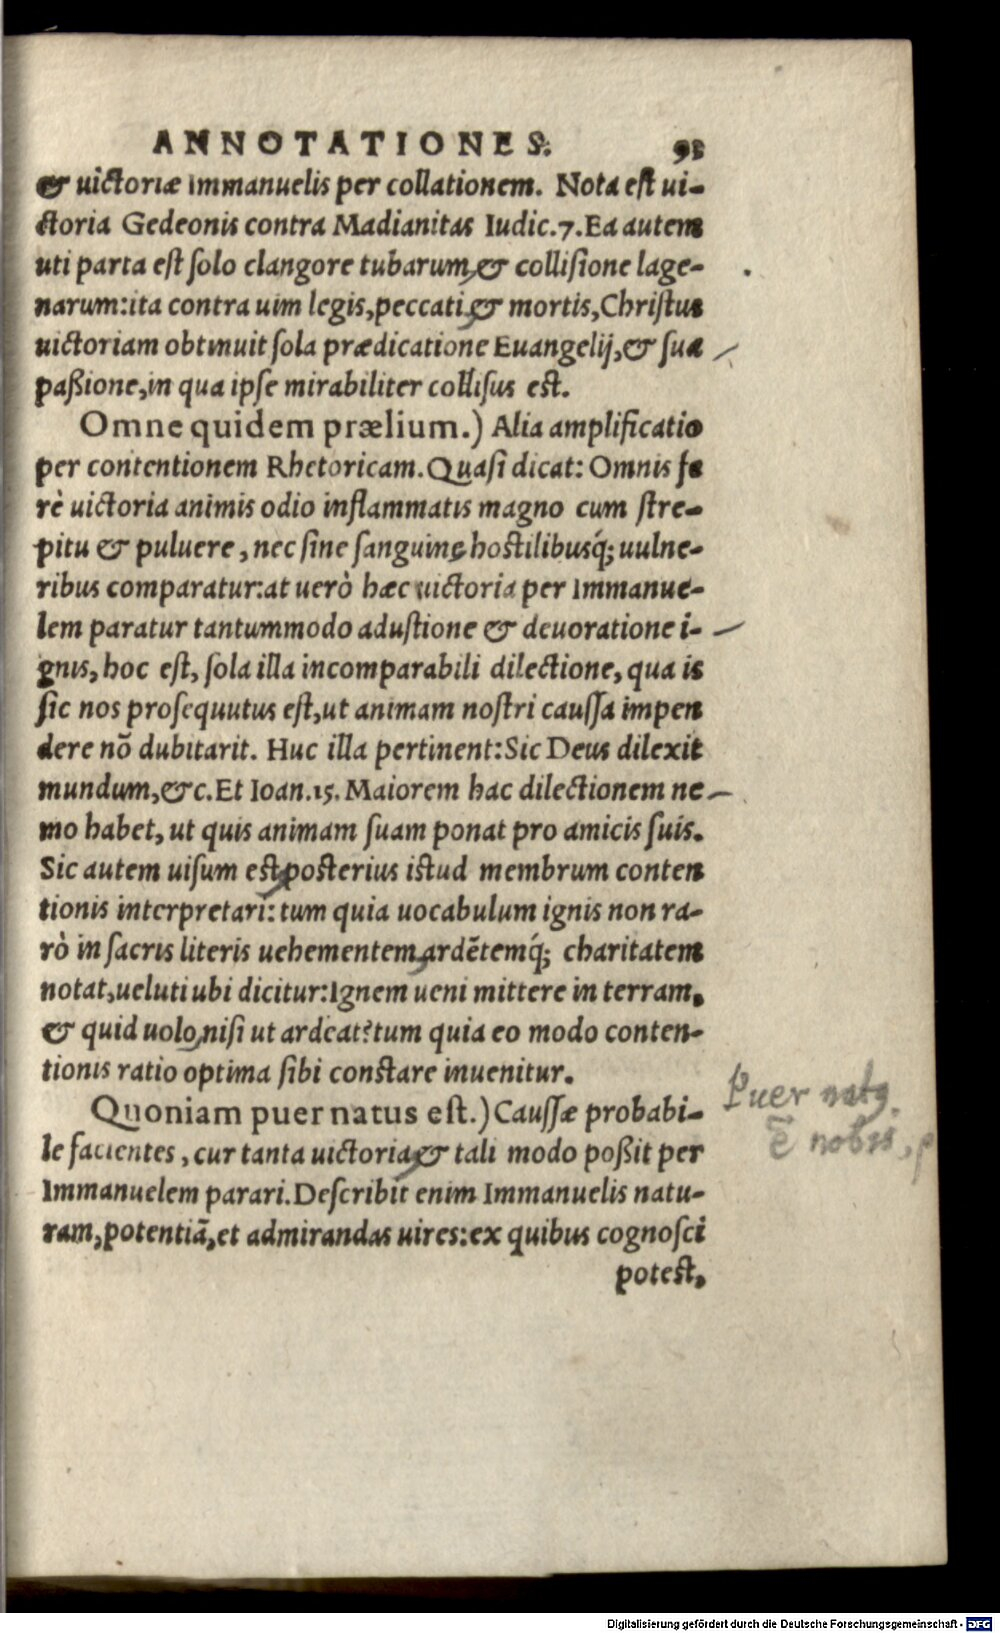 ANNOTATIONES. 93
& uictoriæ Immanuelis per collationem. Nota est ui-
ctoria Gedeonis contra Madianitas Iudic.7. Ea autem
uti parta est solo clangore tubarum, & collisione lage-
narum: ita contra uim legis, peccati, & mortis, Christus
uictoriam obtinuit sola prædicatione Euangelij, & sua
paßione, in qua ipse mirabiliter collisus est.
Omne quidem prælium.) Alia amplificatio
per contentionem Rhetoricam. Quasi dicat: Omnis fe
rè uictoria animis odio inflammatis magno cum stre-
pitu & puluere, nec sine sanguine, hostilibusq́; uulne-
ribus comparatur: at uerò hæc uictoria per Immanue-
lem paratur tantummodo adustione & deuoratione i-
gnis, hoc est, sola illa incomparabili dilectione, qua is
sic nos prosequutus est, ut animam nostri caussa impen
dere nõ dubitarit. Huc illa pertinent: Sic Deus dilexit
mundum, &c. Et Ioan.15. Maiorem hac dilectionem ne
mo habet, ut quis animam suam ponat pro amicis suis.
Sic autem uisum est, posterius istud membrum conten
tionis interpretari: tum quia uocabulum ignis non ra-
rò in sacris literis uehementem, ardẽtemq́; charitatem
notat, ueluti ubi dicitur: Ignem ueni mittere in terram,
& quid uolo, nisi ut ardeat? tum quia eo modo conten-
tionis ratio optima sibi constare inuenitur.
Quoniam puer natus est.) Caussæ probabi-
le facientes, cur tanta uictoria, & tali modo poßit per
Immanuelem parari. Describit enim Immanuelis natu-
ram, potentiã, et admirandas uires: ex quibus cognosci
potest,
Puer natꝰ
ē nobis,
Digitalisierung gefördert durch die Deutsche Forschungsgemeinschaft - DFG